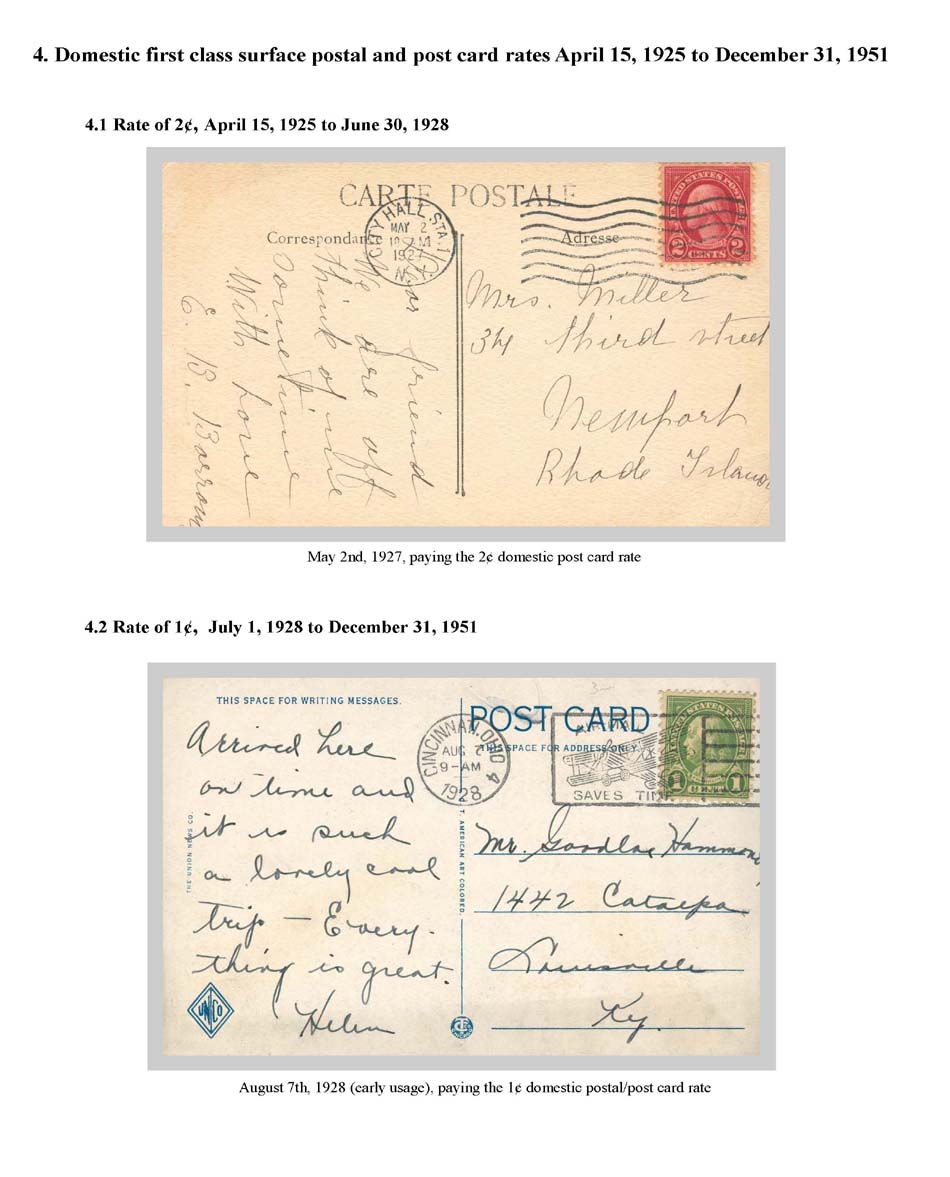 4. Domestic first class surface postal and post card rates April 15, 1925 to December 31, 1951
4.1 Rate of 2¢, April 15, 1925 to June 30, 1928
CARTE POSTALE
Correspondance
Adresse
CITY HALL STA.
MAY 2
1927
N.Y.
UNITED STATES POSTAGE
2 CENTS 2
Dear friend
We are off
think of me
sometime
With Love
E. B. Barrow
Mrs. Miller
34 third street
Newport
Rhode Island
May 2nd, 1927, paying the 2¢ domestic post card rate
4.2 Rate of 1¢, July 1, 1928 to December 31, 1951
THIS SPACE FOR WRITING MESSAGES.
POST CARD
THIS SPACE FOR ADDRESS ONLY.
CINCINNATI, OHIO 4
AUG 7
9-AM
1928
AIR MAIL
SAVES TIME
UNITED STATES POSTAGE
1 1
Arrived here
on time and
it is such
a lovely cool
trip — Every-
thing is great.
Helen
THE UNION NEWS CO.
UNCO
AMERICAN ART COLORED.
Mr. Goodloe Hammond
1442 Catalpa
Louisville
Ky.
August 7th, 1928 (early usage), paying the 1¢ domestic postal/post card rate